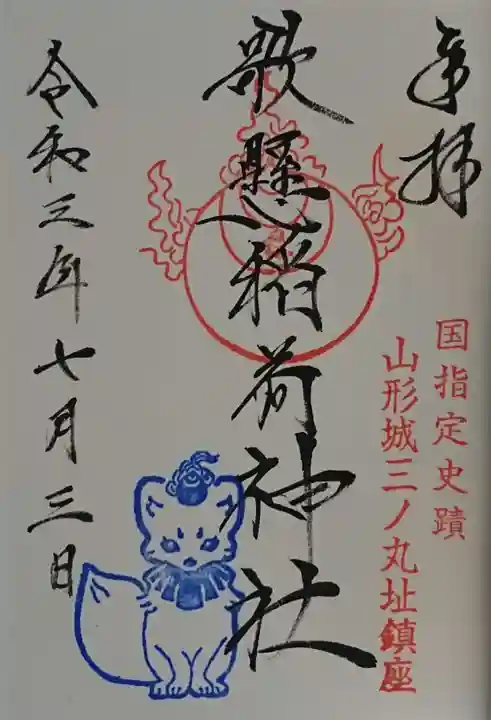 奉拝
国指定史蹟
山形城三ノ丸址鎮座
歌懸稲荷神社
令和三年七月三日